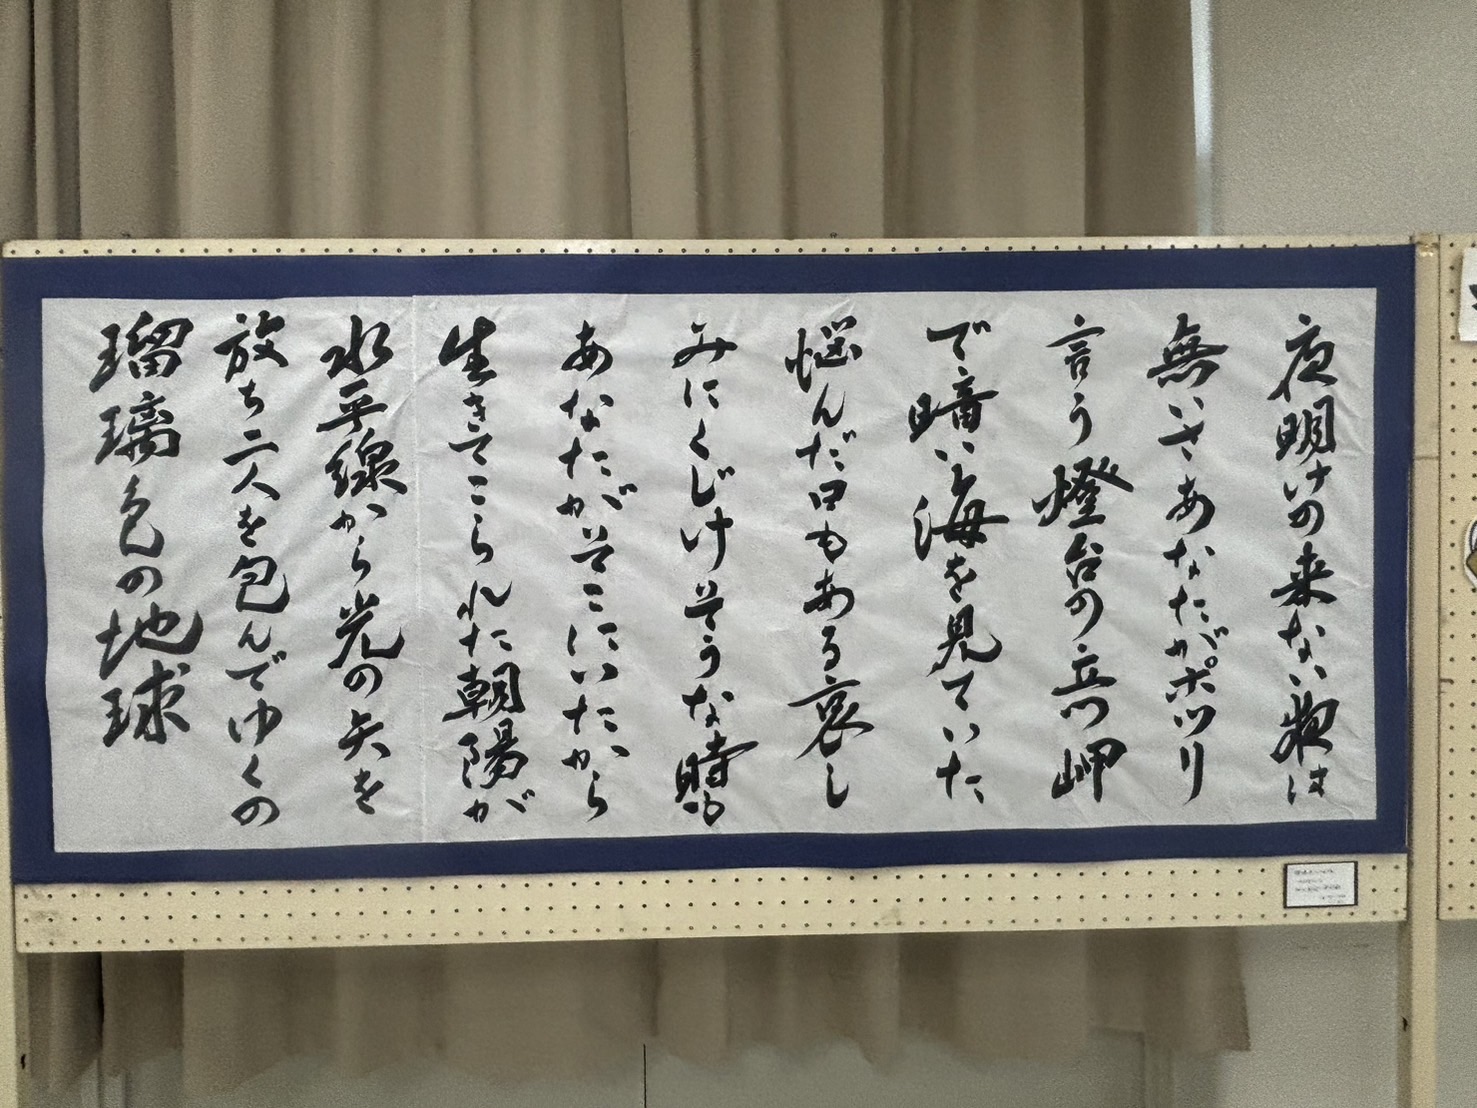 夜明けの来ない夜は
無いさあなたがポツリ
言う燈台の立つ岬
で暗い海を見ていた
悩んだ日もある哀し
みにくじけそうな時も
あなたがそこにいたから
生きてこられた朝陽が
水平線から光の矢を
放ち二人を包んでゆくの
瑠璃色の地球